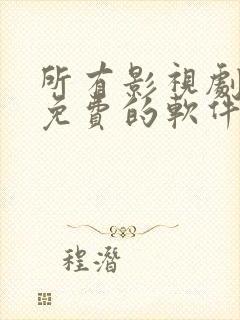 所有影視劇
免費的軟件
程潛